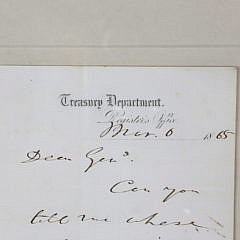 Treasury Department.
Register's Office
Nov. 6 1865
Dear Genl.
Can you
tell me where